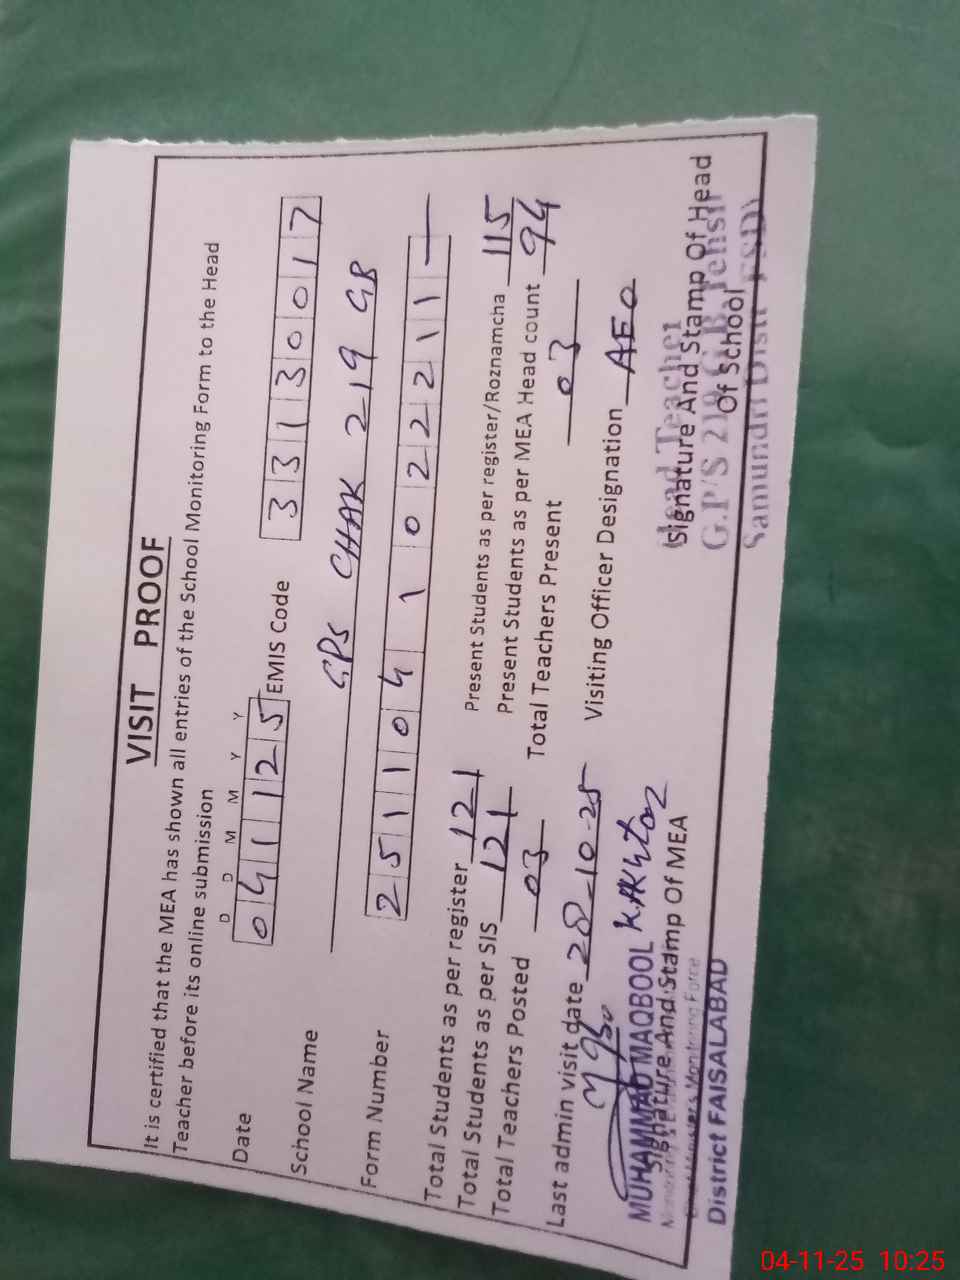 VISIT PROOF
It is certified that the MEA has shown all entries of the School Monitoring Form to the Head
Teacher before its online submission
D D M M Y Y
Date 041125 EMIS Code 33130017
School Name GPS CHAK 219 GB
Form Number 2511041022211
Total Students as per register 121 Present Students as per register/Roznamcha 115
Total Students as per SIS 121 Present Students as per MEA Head count 94
Total Teachers Posted 03 Total Teachers Present 03
Last admin visit date 28-10-25 Visiting Officer Designation AEO
MUHAMMAD MAQBOOL
Signature And Stamp Of MEA
Monitoring Force
District FAISALABAD
Head Teacher
Signature And Stamp Of Head
G.P/S 219 G.B Tehsil
Of School
Samundri Distt FSD
04-11-25 10:25